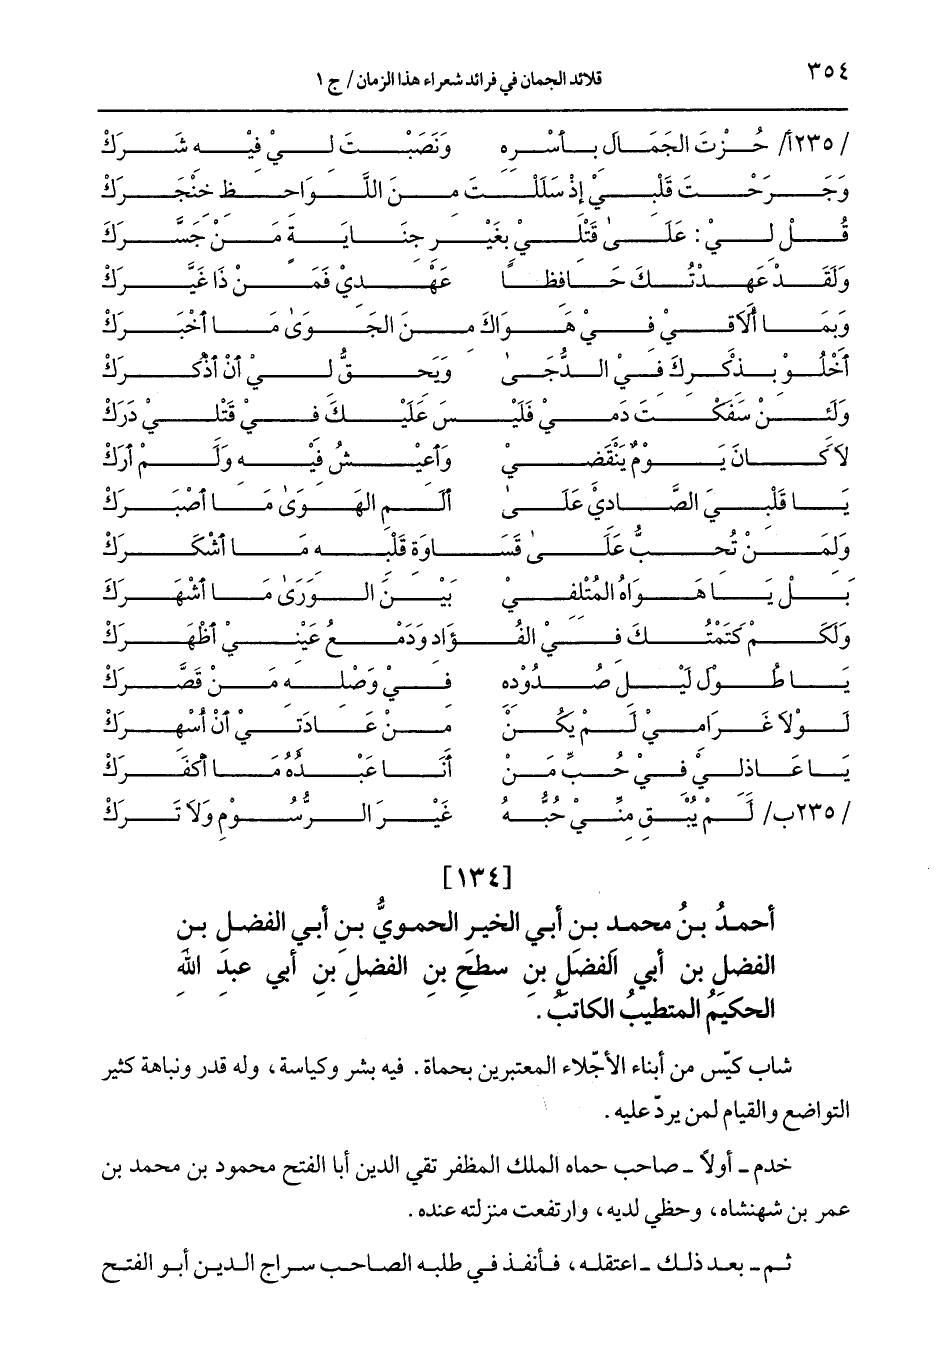 ٣٥٤
قلائد الجمان في فرائد شعراء هذا الزمان/ ج ١
/ ٢٣٥أ/ حُزْتَ الجَمَالَ بِأَسْرِهِ وَنَصَبْتَ لِيْ فِيْهِ شَرَكْ
وَجَرَحْتَ قَلْبِيْ إِذْ سَلَلْتَ مِنَ اللَّوَاحِظِ خِنْجَرَكْ
قُلْ لِيْ: عَلَىٰ قَتْلِيْ بِغَيْرِ جِنَايَةٍ مَنْ جَسَّرَكْ
وَلَقَدْ عَهِدْتُكَ حَافِظاً عَهْدِيْ فَمَنْ ذَا غَيَّرَكْ
وَبِمَا أُلاَقِيْ فِيْ هَوَاكَ مِنَ الجَوَىٰ مَا أَخْبَرَكْ
أَخْلُو بِذِكْرِكَ فِيْ الدُّجَىٰ وَيَحِقُّ لِيْ أَنْ أَذْكُرَكْ
وَلَئِنْ سَفَكْتَ دَمِيْ فَلَيْسَ عَلَيْكَ فِيْ قَتْلِيْ دَرَكْ
لاَ كَانَ يَوْمٌ يَنْقَضِيْ وَأَعِيْشُ فِيْهِ وَلَمْ أَرَكْ
يَا قَلْبِيَ الصَّادِيْ عَلَىٰ أَلَمِ الهَوَىٰ مَا أَصْبَرَكْ
وَلِمَنْ تُحِبُّ عَلَىٰ قَسَاوَةِ قَلْبِهِ مَا أَشْكَرَكْ
بَلْ يَا هَوَاهُ المُتْلِفِيْ بَيْنَ الوَرَىٰ مَا أَشْهَرَكْ
وَلَكَمْ كَتَمْتُكَ فِيْ الفُؤَادِ وَدَمْعُ عَيْنِيْ أَظْهَرَكْ
يَا طُولَ لَيْلِ صُدُوْدِهِ فِيْ وَصْلِهِ مَنْ قَصَّرَكْ
لَوْلاَ غَرَامِيْ لَمْ يَكُنْ مِنْ عَادَتِيْ أَنْ أَسْهَرَكْ
يَا عَاذِلِيْ فِيْ حُبِّ مَنْ أَنَا عَبْدُهُ مَا أَكْفَرَكْ
/ ٢٣٥ب/ لَمْ يُبْقِ مِنِّيْ حُبُّهُ غَيْرَ الرُّسُوْمِ وَلاَ تَرَكْ
[١٣٤]
أحمدُ بنُ محمد بن أبي الخير الحمويُّ بن أبي الفضل بن
الفضل بن أبي الفضل بن سطحِ بن الفضلِ بن أبي عبد الله
الحكيمُ المتطيبُ الكاتبُ.
شاب كيّس من أبناء الأجّلاء المعتبرين بحماة. فيه بشر وكياسة، وله قدر ونباهة كثير
التواضع والقيام لمن يردّ عليه.
خدم ـ أولاً ـ صاحب حماه الملك المظفر تقي الدين أبا الفتح محمود بن محمد بن
عمر بن شهنشاه، وحظي لديه، وارتفعت منزلته عنده.
ثم ـ بعد ذلك ـ اعتقله، فأنفذ في طلبه الصاحب سراج الدين أبو الفتح